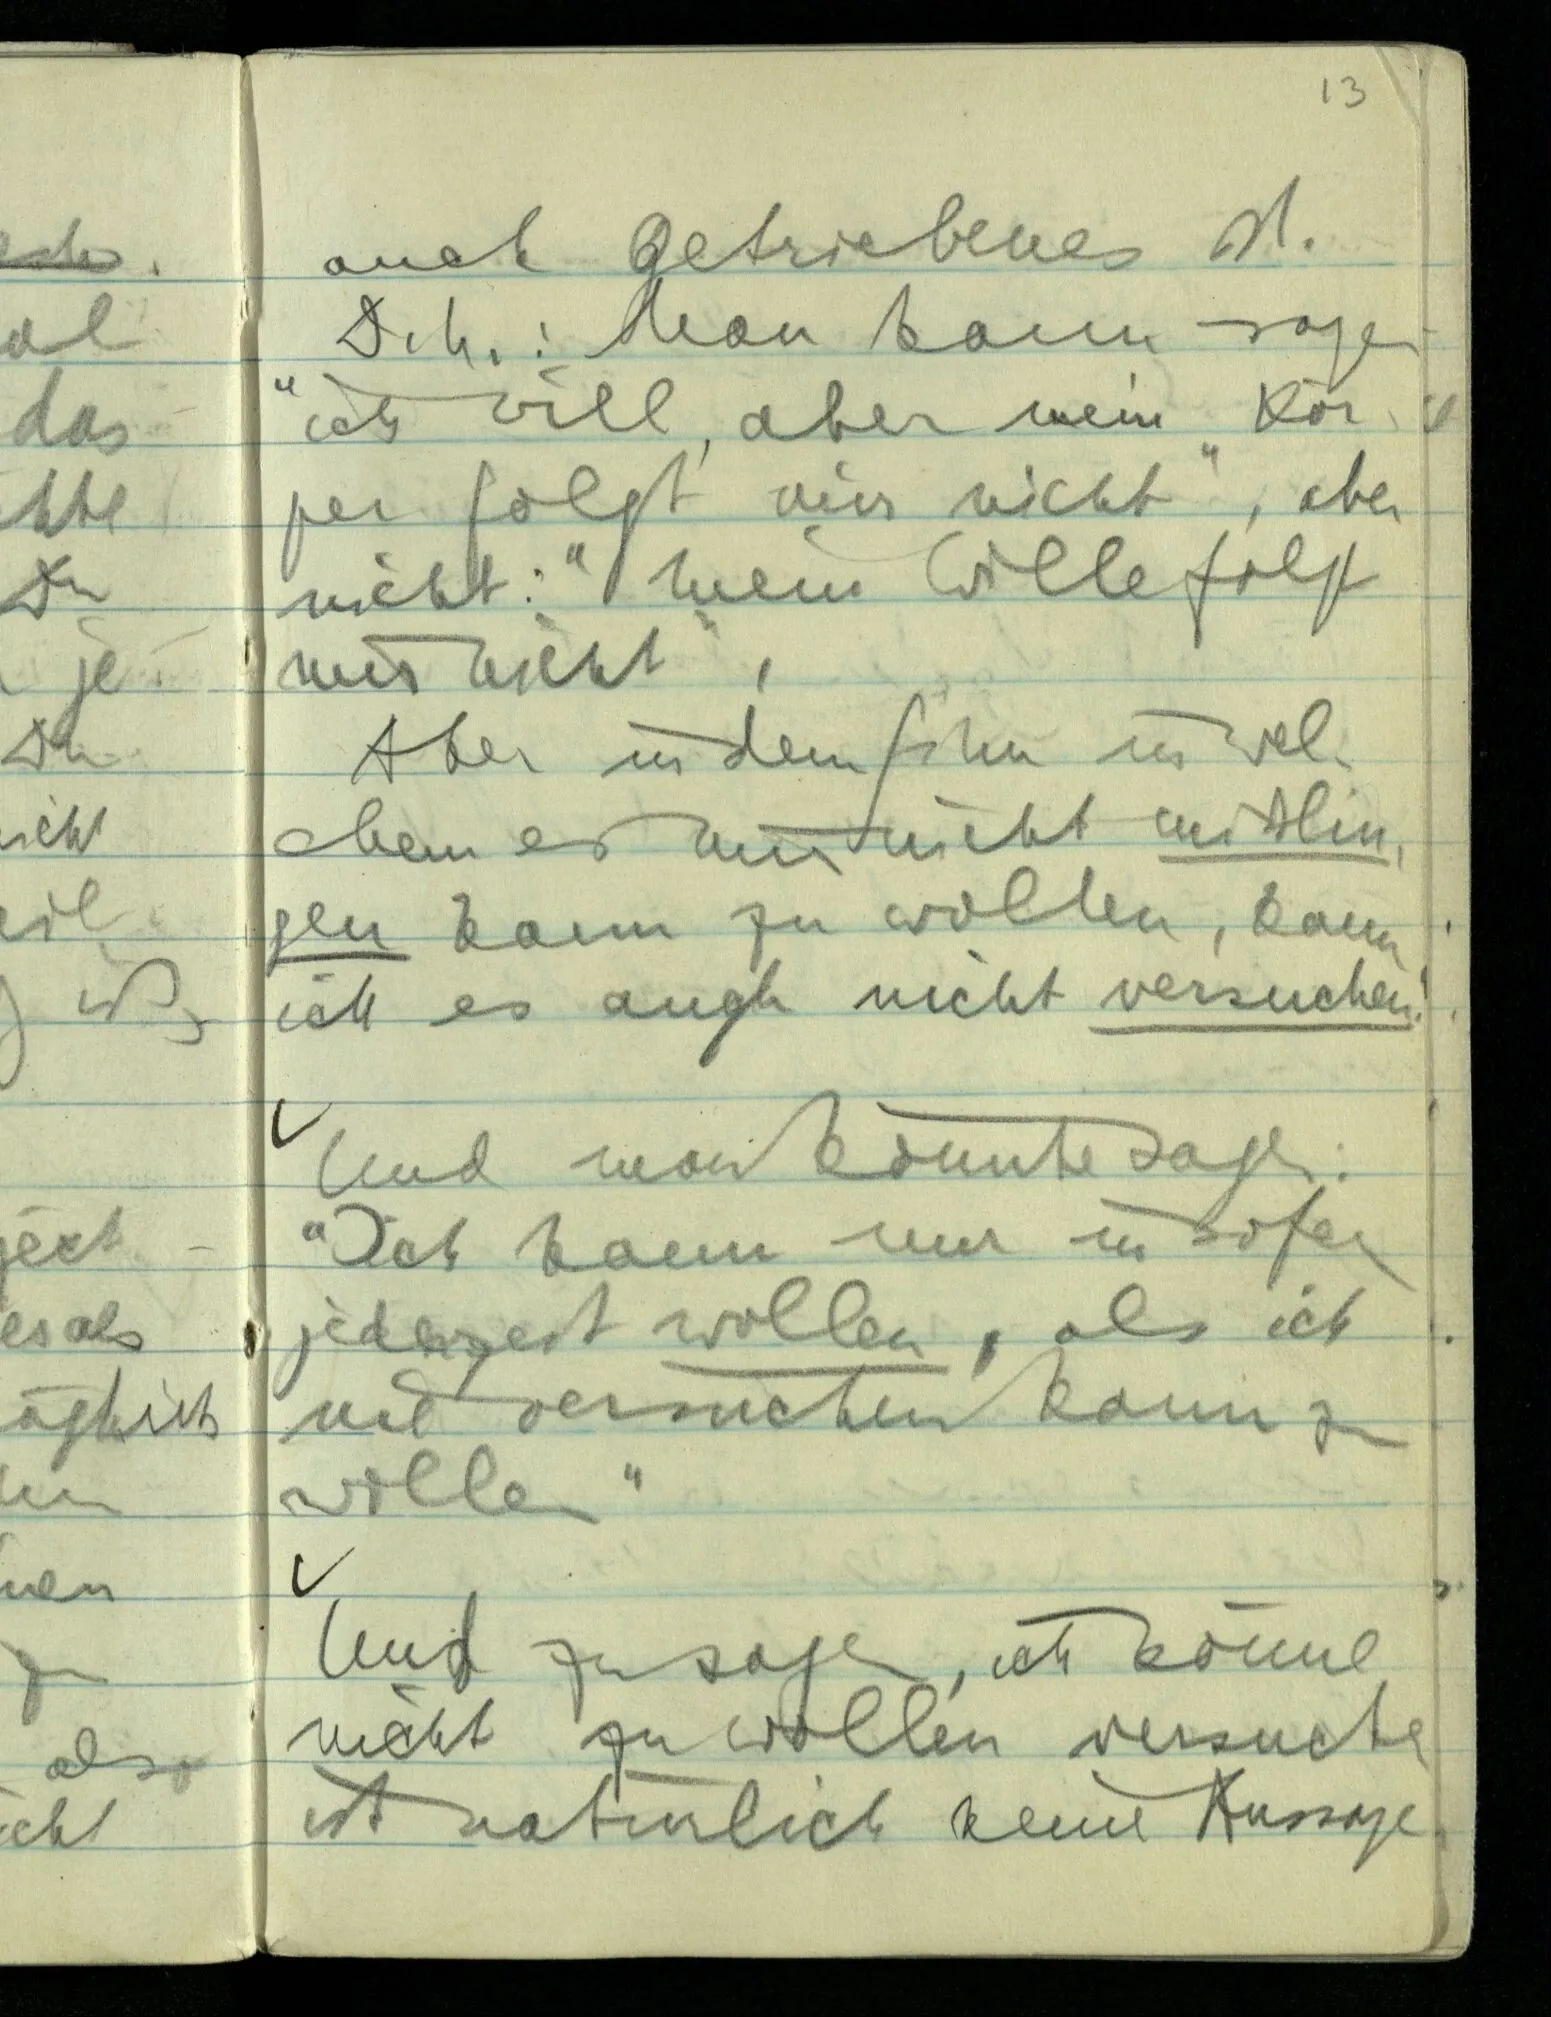 13
auch Getriebenes ist.
D.h.: Man kann sagen
"ich will, aber mein Kör-
per folgt mir nicht", aber
nicht: "mein Wille folgt
mir nicht",
Aber in dem Sinn in wel-
chem es mir nicht mißlin-
gen kann zu wollen, kann
ich es auch nicht versuchen!
Und man könnte sagen:
"Ich kann nur insofern
jederzeit wollen, als ich
nie versuchen kann zu
wollen"
Und zu sagen, ich könne
nicht zu wollen versuchen
ist natürlich keine Aussage
das
Du
je-
Du
nicht
ist,
also